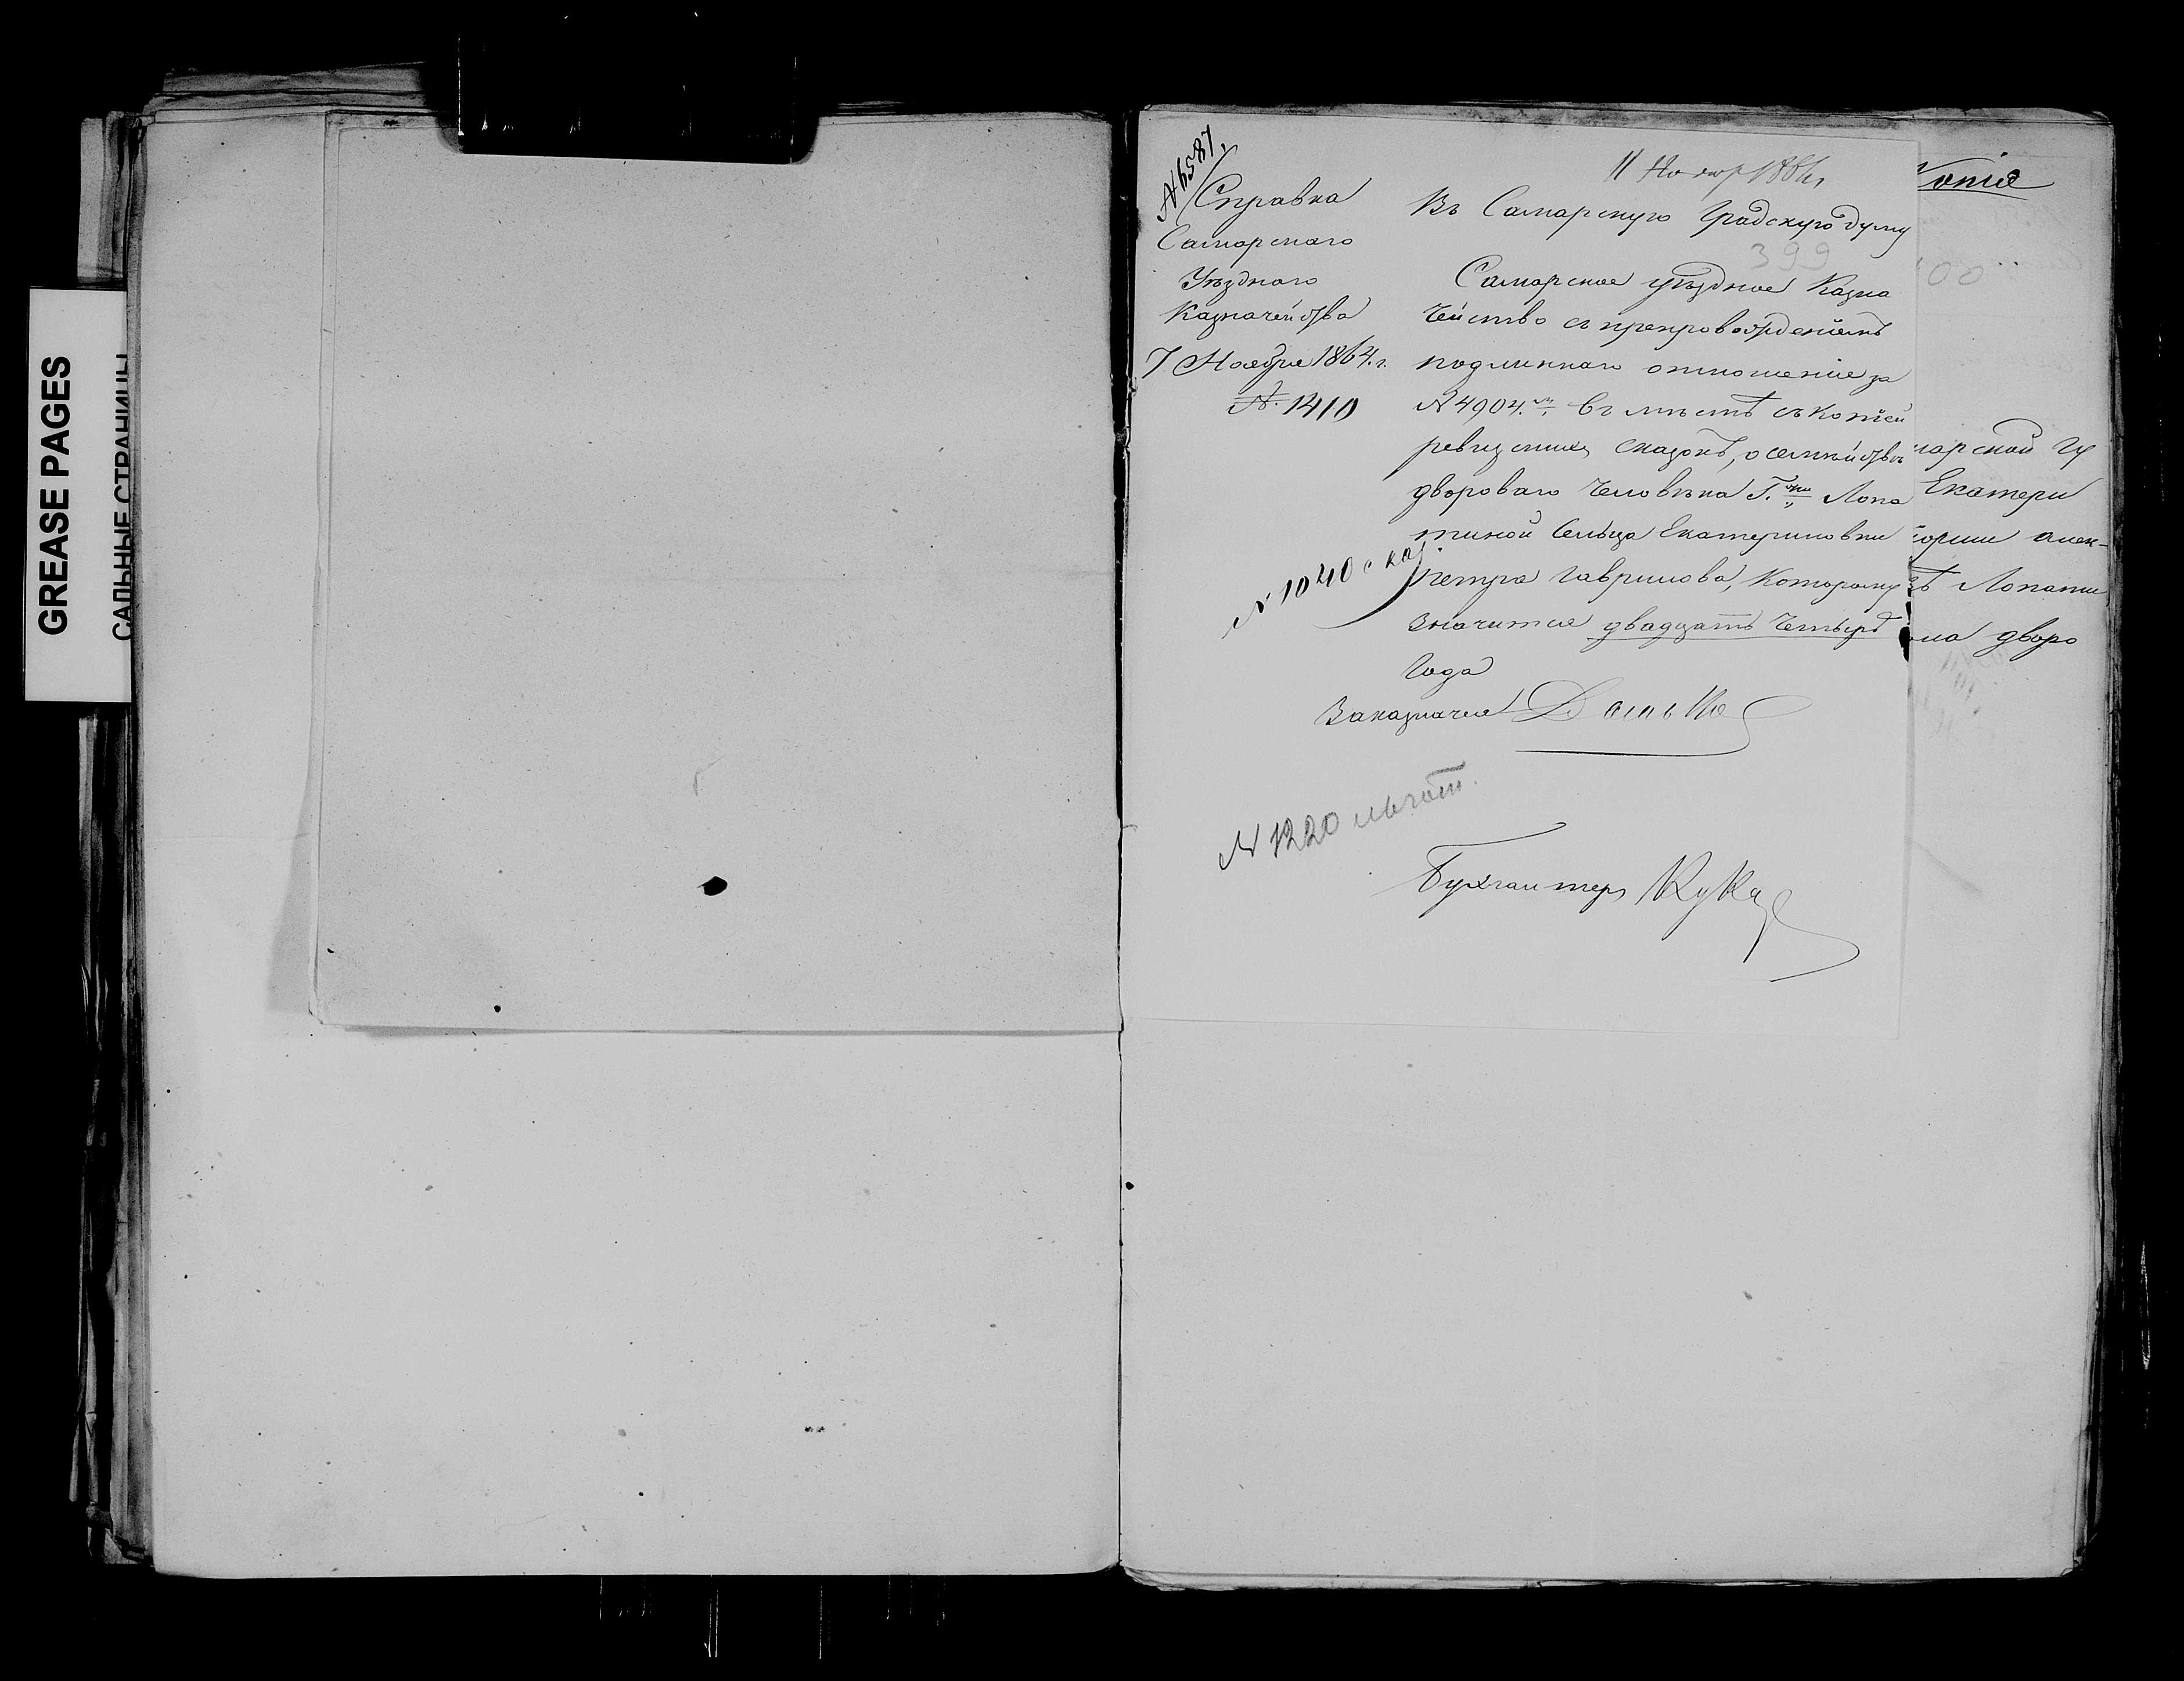 GREASE PAGES
САЛЬНЫЕ СТРАНИЦЫ
№6587.
Справка
Самарскаго
Уѣзднаго
Казначейства
7 Ноября 1864. г.
№. 1410
11 Ноябр 1864
Въ Самарскую Градскую думу
399
Самарское уѣздное Казна
чейство съ препровожденіемъ
подлиннаго отношенія за
№ 4904. въ мѣстѣ съ копіей
ревизскихъ сказокъ, о семействѣ
двороваго человѣка Г.жи Лопа
тиной Сельца Екатериновки
Петра Гаврилова, Которому
значится двадцать четыре
года
№ 1040
Заказначея
№ 1220
Бухгалтеръ
Копія
00
марской Гу
Екатери
Лопати
дворо